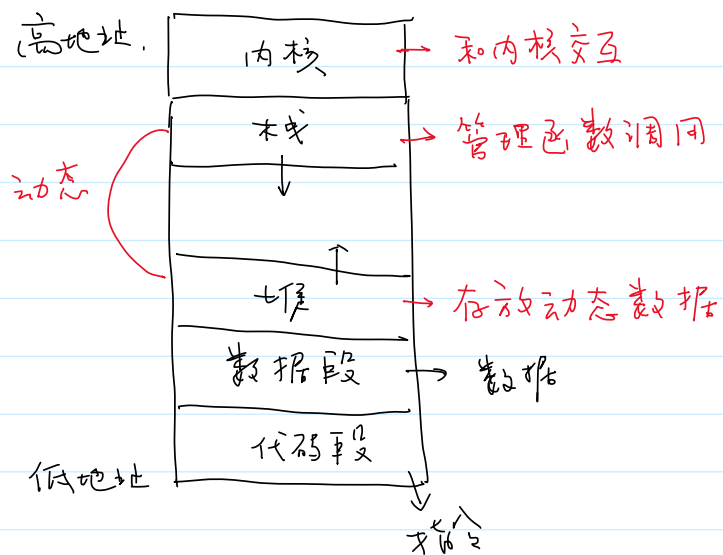 高地址.
内核 → 和内核交互
栈 → 管理函数调用
动态
堆 → 存放动态数据
数据段 → 数据
代码段
低地址
指令